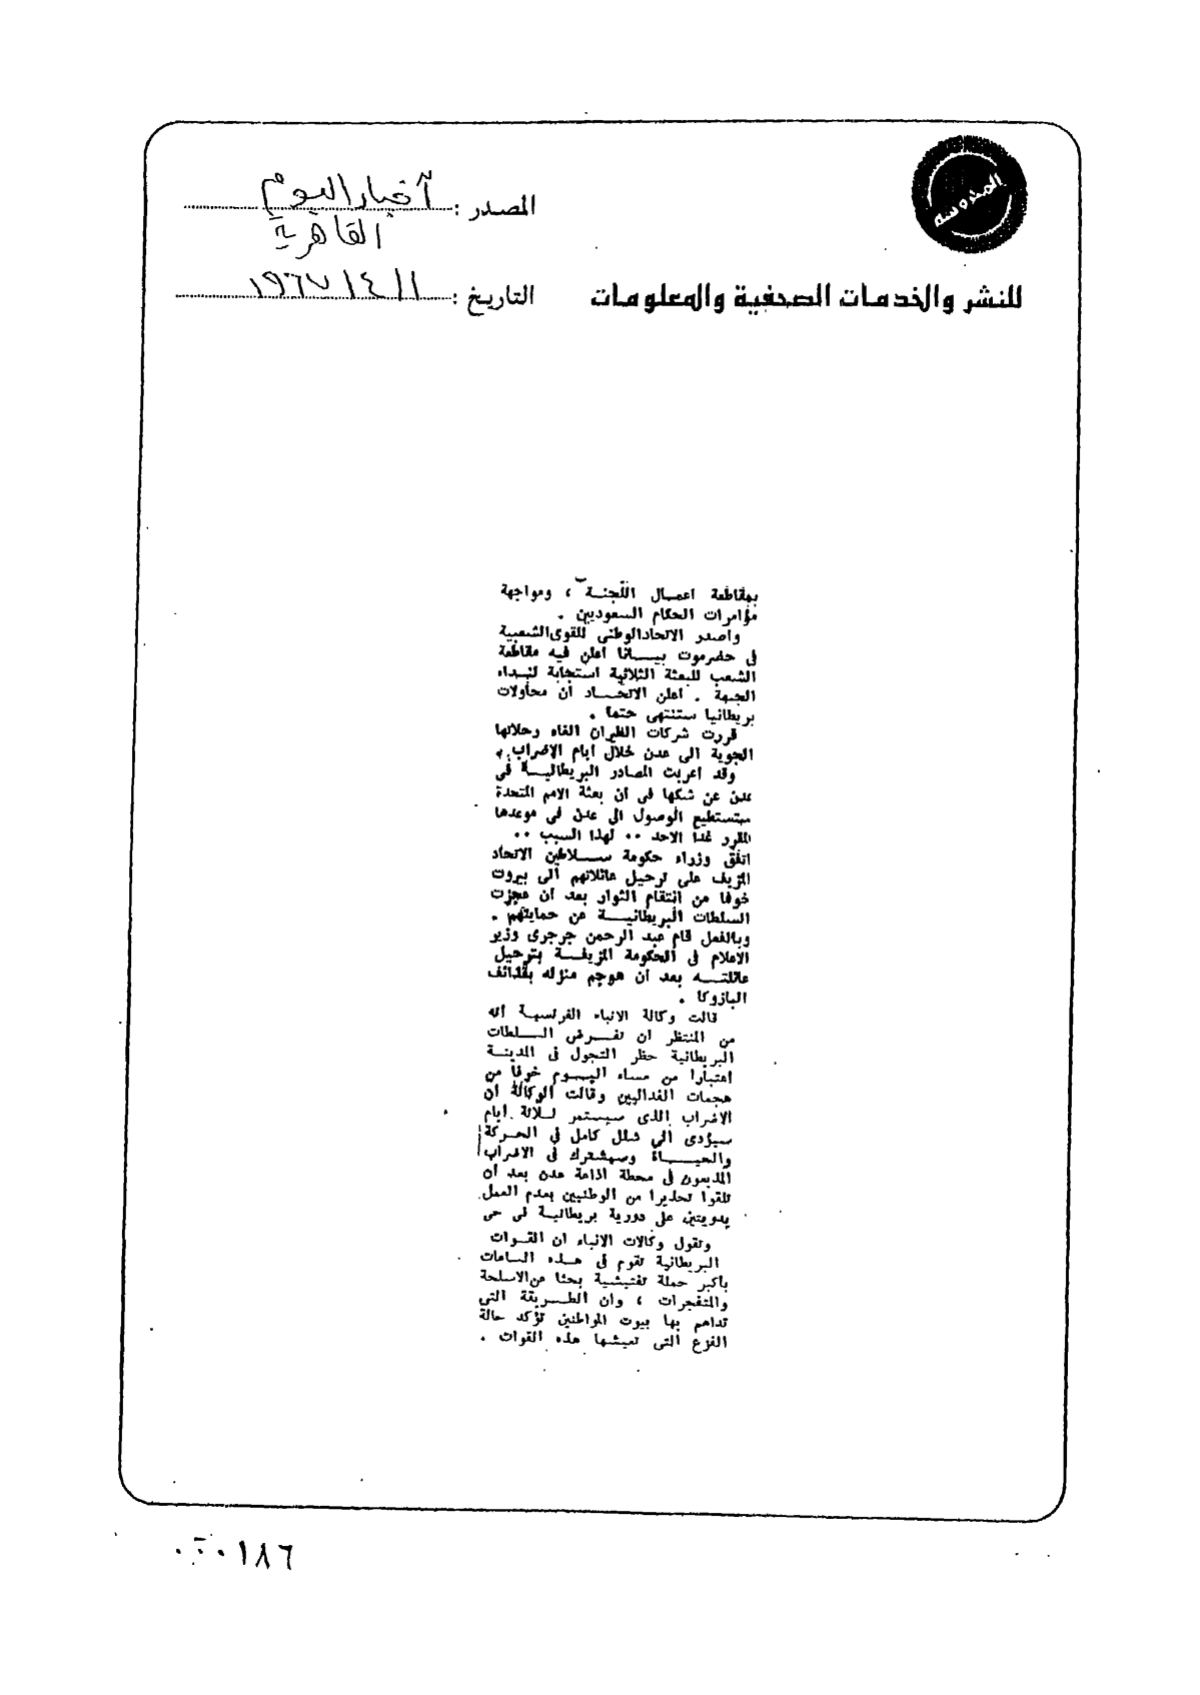 المحروسة
المصدر : أخبار اليوم
القاهرية
للنشر والخدمات الصحفية والمعلومات
التاريخ : ١٩٦٧/٤/١
بمقاطعة اعمال اللجنة ، ومواجهة
مؤامرات الحكام السعوديين .
واصدر الاتحاد الوطنى للقوى الشعبية
فى حضرموت بيانا اعلن فيه مقاطعة
الشعب للبعثة الثلاثية استجابة لنداء
الجبهة . اعلن الاتحاد ان محاولات
بريطانيا ستنتهى حتما .
قررت شركات الطيران الغاء رحلاتها
الجوية الى عدن خلال ايام الاضراب .
وقد اعربت المصادر البريطانية فى
عدن عن شكها فى ان بعثة الامم المتحدة
ستستطيع الوصول الى عدن فى موعدها
المقرر غدا الاحد .. لهذا السبب ..
اتفق وزراء حكومة سلاطين الاتحاد
المزيف على ترحيل عائلاتهم الى بيروت
خوفا من انتقام الثوار بعد ان عجزت
السلطات البريطانية عن حمايتهم .
وبالفعل قام عبد الرحمن جرجرى وزير
الاعلام فى الحكومة المزيفة بترحيل
عائلته بعد ان هوجم منزله بقذائف
البازوكا .
قالت وكالة الانباء الفرنسية انه
من المنتظر ان تفرض السلطات
البريطانية حظر التجول فى المدينة
اعتبارا من مساء اليوم خوفا من
هجمات الفدائيين وقالت الوكالة ان
الاضراب الذى سيستمر ثلاثة ايام
سيؤدى الى شلل كامل فى الحركة
والحياة وسيشترك فى الاضراب
المذيعون فى محطة اذاعة عدن بعد ان
تلقوا تحذيرا من الوطنيين بعدم العمل
يدويتين على دورية بريطانية فى حى
وتقول وكالات الانباء ان القوات
البريطانية تقوم فى هذه الساعات
باكبر حملة تفتيشية بحثا عن الاسلحة
والمتفجرات ، وان الطريقة التى
تداهم بها بيوت المواطنين تؤكد حالة
الفزع التى تعيشها هذه القوات .
١٨٦